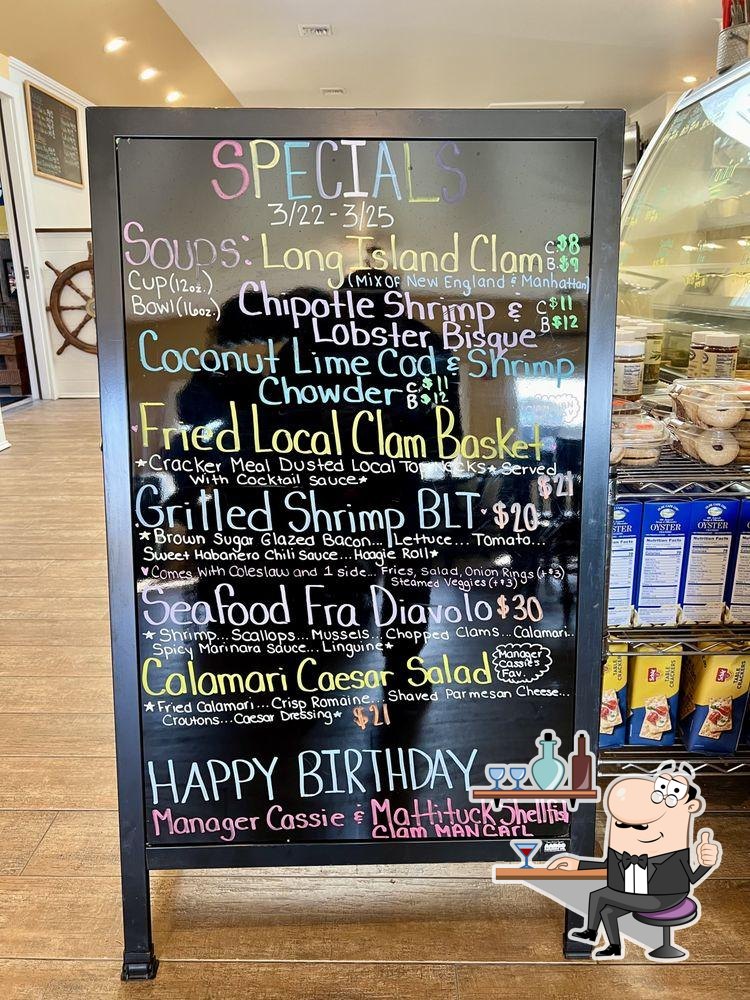 SPECIALS
3/22 - 3/25
Soups: Long Island Clam C $8
B $9
(Mix of New England & Manhattan)
Cup (12oz.)
Bowl (16oz.)
Chipotle Shrimp & C $11
Lobster Bisque B $12
Coconut Lime Cod & Shrimp
Chowder C $11
B $12
Fried Local Clam Basket
*Cracker Meal Dusted Local Top Necks* Served
With Cocktail Sauce*
$21
Grilled Shrimp BLT $20
*Brown Sugar Glazed Bacon... Lettuce... Tomato...
Sweet Habanero Chili Sauce... Hoagie Roll*
♥Comes With Coleslaw and 1 side... Fries, Salad, Onion Rings (+$3)
Steamed Veggies (+$3)
Seafood Fra Diavolo $30
*Shrimp... Scallops... Mussels... Chopped Clams... Calamari..
Spicy Marinara Sauce... Linguine*
Calamari Caesar Salad
Manager
Cassie's
Fav..
*Fried Calamari... Crisp Romaine... Shaved Parmesan Cheese...
Croutons... Caesar Dressing* $21
HAPPY BIRTHDAY
Manager Cassie & Mattituck Shellfis
Clam MAN CARL
OYSTER
OYSTER
Nutrition Facts
TABLE
CRACKERS